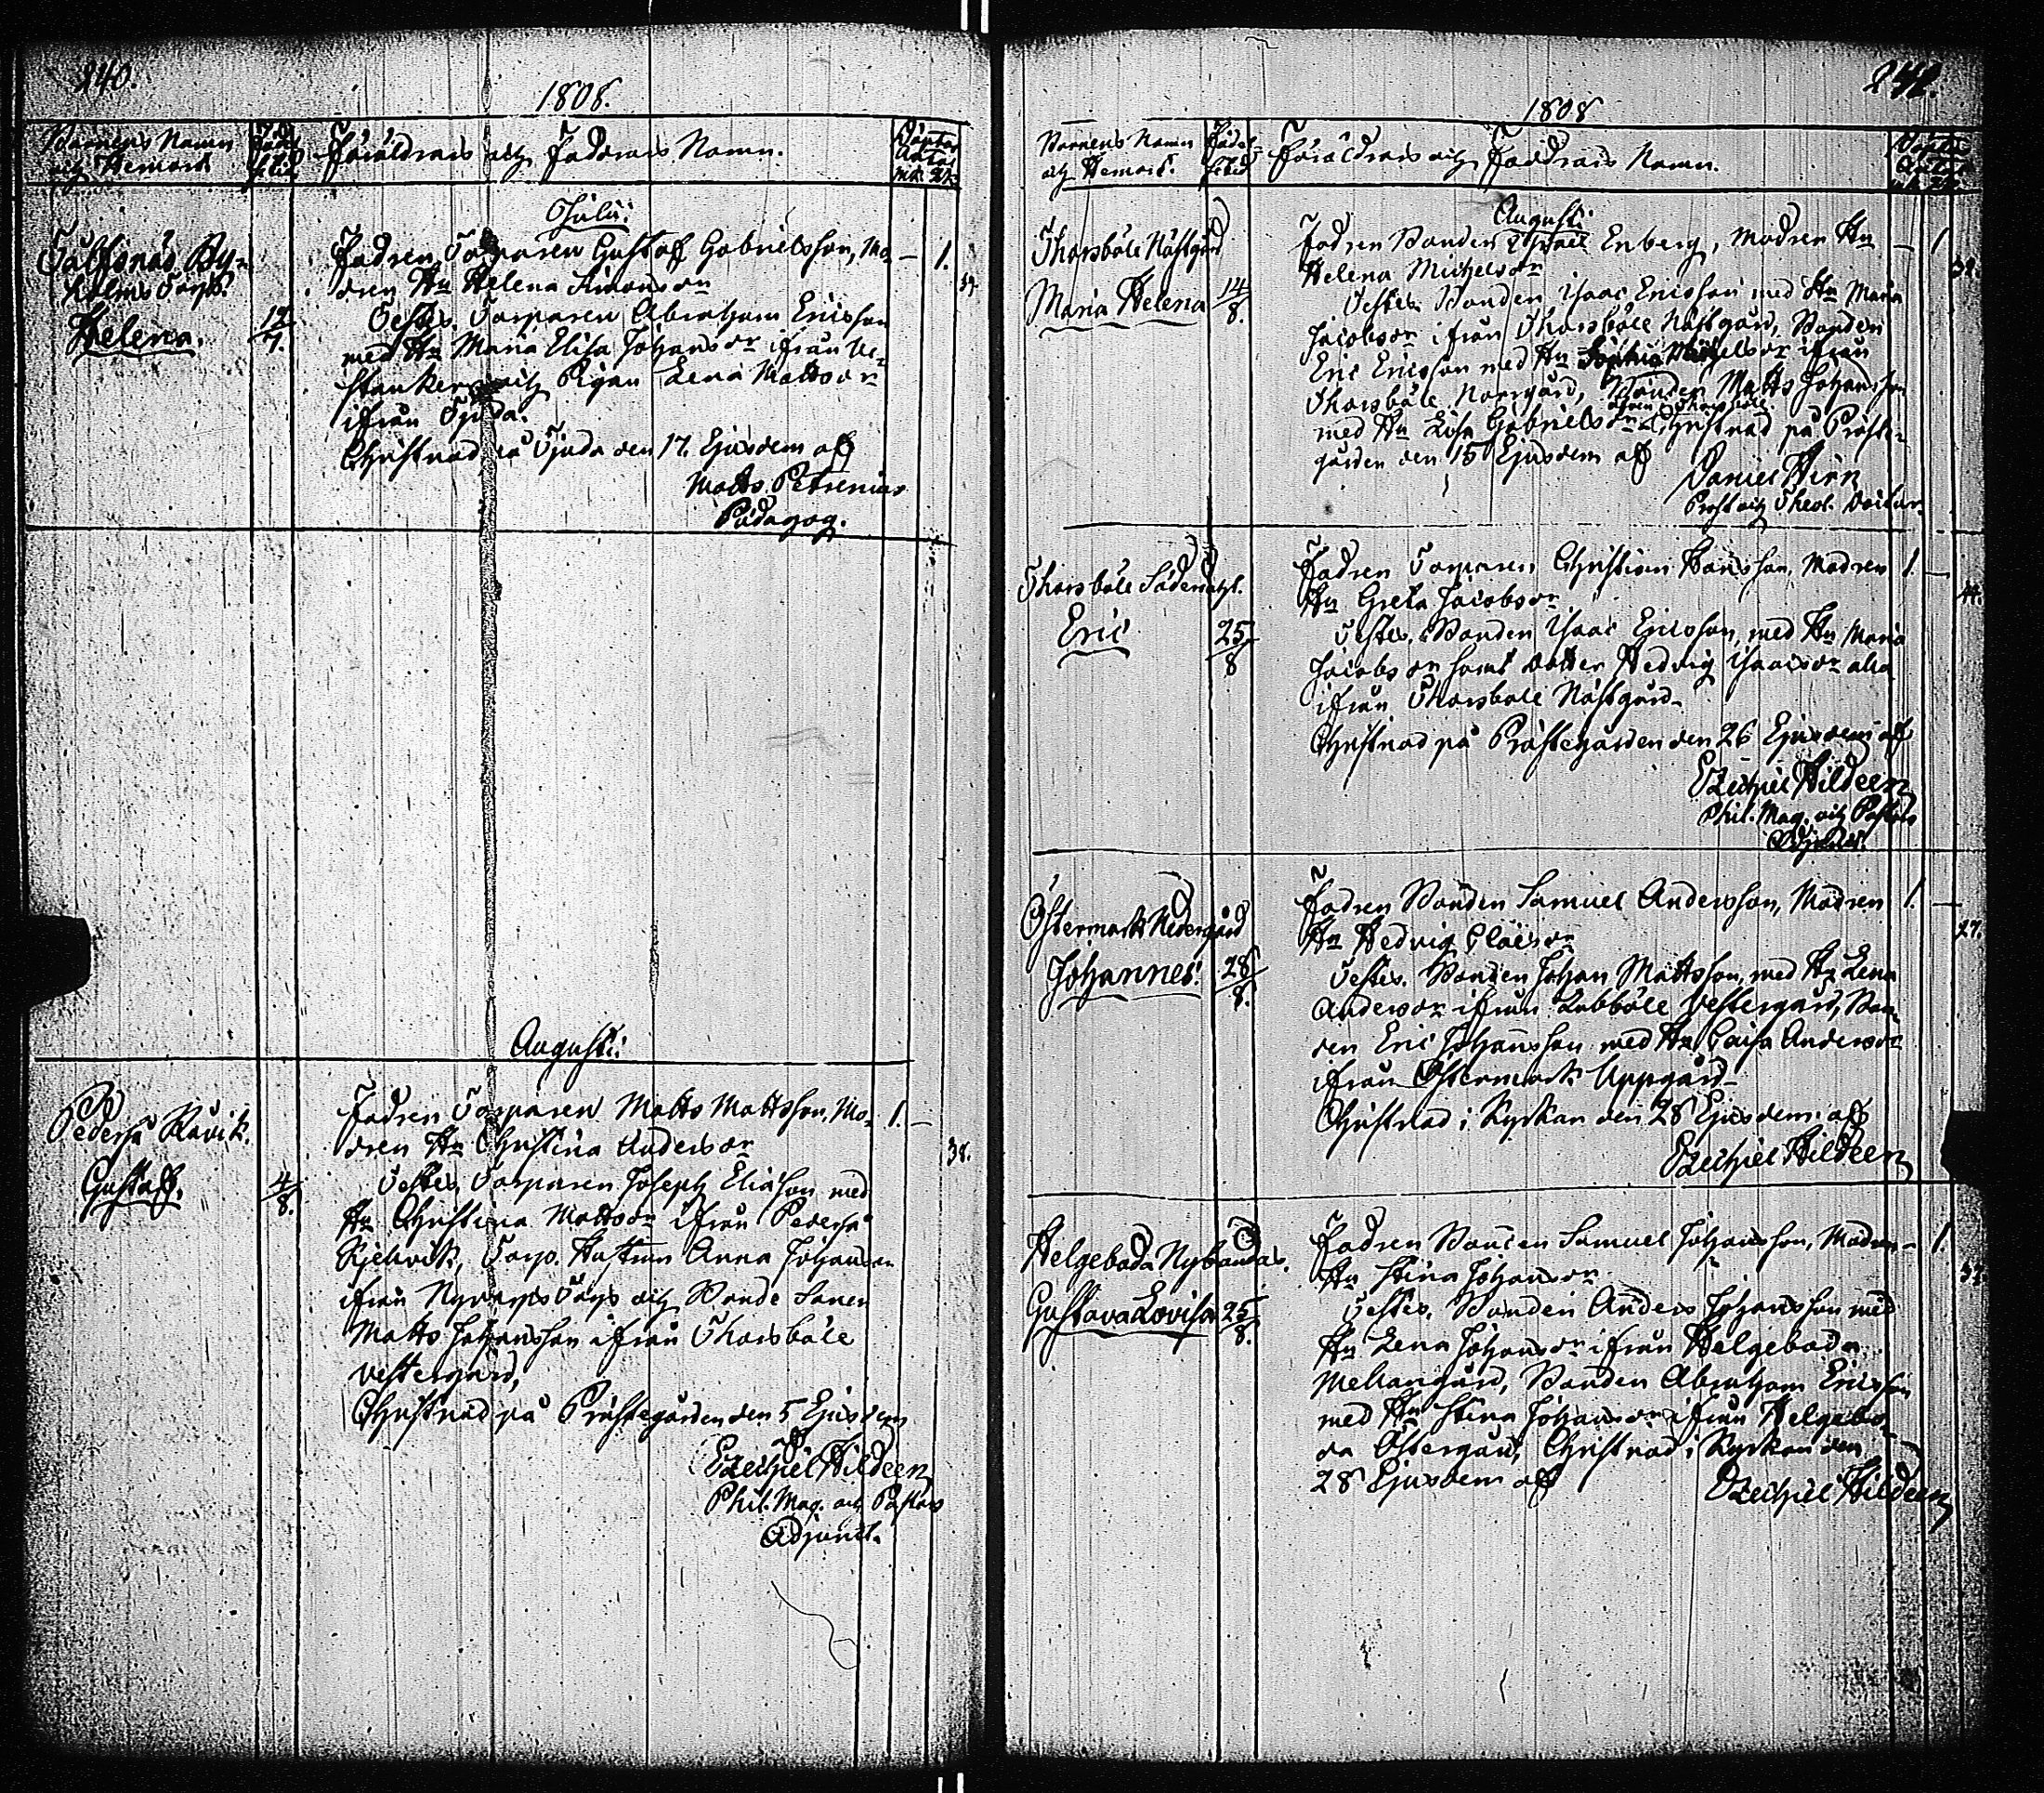 240.
1808.
Barnens Namn
och Hemort
Föräldrars och Faddrars Namn.
Julii
Helena.
12/7.
Fadren Torparen Gustaf Gabrielsson, Mo-
dren Hu Helena Simonsdr
Testes. Torparen Abraham Ericsson
med Hu Maria Elisa Johansdr ifrån We-
och Pigan Lena Mattsdr
ifrån Tjuda.
Christnad på Tjuda den 17. Ejusdem af
Matts Petrenius
Pädagog.
1.
Augusti:
Pederså Råvik.
Gustaff.
4/8.
Fadren Torparen Matts Mattsson, Mo-
dren Hu Christina Andersdr
Testes. Torparen Joseph Eliasson med
Hu Christina Mattsdr ifrån Pederså
Torp. Hustrun Anna Johansdr
ifrån Torp och Bonde Sonen
Matts Johansson ifrån Thorsböle
Vestergård,
Christnad på Prästegården den 5 Ejusdem
af
Ezechiel Hildeen
Phil. Mag. och Pastors
Adjunct.
1. —
38.
241.
1808
Barnens Namn
och Hemort.
Föräldrars och Faddrars Namn.
Augusti
Thorsböle Nästgård
Maria Helena
14/8.
Fadren Bonden Enberg, Modren Hu
Helena Michelsdr
Testes Bonden Isaac Ericsson med Hu Maria
Jacobsdr ifrån Thorsböle Nästgård, Bonden
Eric Ericsson med Hu ifrån
Thorsböle Norrgård, Bonden Matts Johansson
med Hu Lisa Gabrielsdr Christnad på Präste-
gården den 15 Ejusdem af
Daniel Hirn
Prost och Theol. Doctor.
— 1
Eric
25/8
Fadren Torparen Christian Hansson, Modren
Hu Greta Jacobsdr
Testes. Bonden Isaac Ericsson, med Hu Maria
Jacobsdr samt dotter Hedvig Isaacsdr alla
ifrån Thorsböle Nästgård.
Christnad på Prästegården den 26 Ejusdem af
Ezechiel Hildeen
Phil. Mag. och Pastors
Adjunct.
1. —
44.
Östermark Nedergård
Johannes.
28/8.
Fadren Bonden Samuel Andersson, Modren
Hu Hedvig Claesdr
Testes. Bonden Johan Mattsson, med Hu Lena
Andersdr ifrån Labböle Vestergård, Bon-
den Eric Johansson med Hu Caisa Andersdr
ifrån Östermark Uppgård.
Christnad i Kyrkan den 28 Ejusdem af
Ezechiel Hildeen
1. —
27.
Helgeboda Nybondas.
Gustava Lovisa
25/8.
Fadren Bonden Samuel Johansson, Modren
Hu Stina Johansdr
Testes. Bonden Anders Johansson med
Hu Lena Johansdr ifrån Helgeboda
Mellangård, Bonden Abraham Ericsson
med Hu Stina Johansdr ifrån Helgebo-
da Östergård, Christnad i Kyrkan den
28 Ejusdem af
Ezechiel Hildeen
— 1.